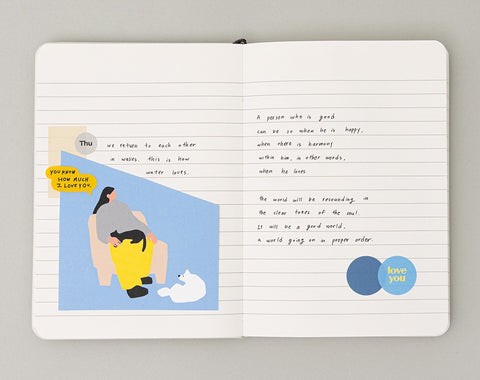 Thu
we return to each other
in waves. this is how
water loves.
YOU KNOW
HOW MUCH
I LOVE YOU.
A person who is good
can be so when he is happy,
when there is harmony
within him, in other words,
when he loves
the world will be resounding in
the clear tones of the soul.
It will be a good world,
a world going on in proper order.
love
you